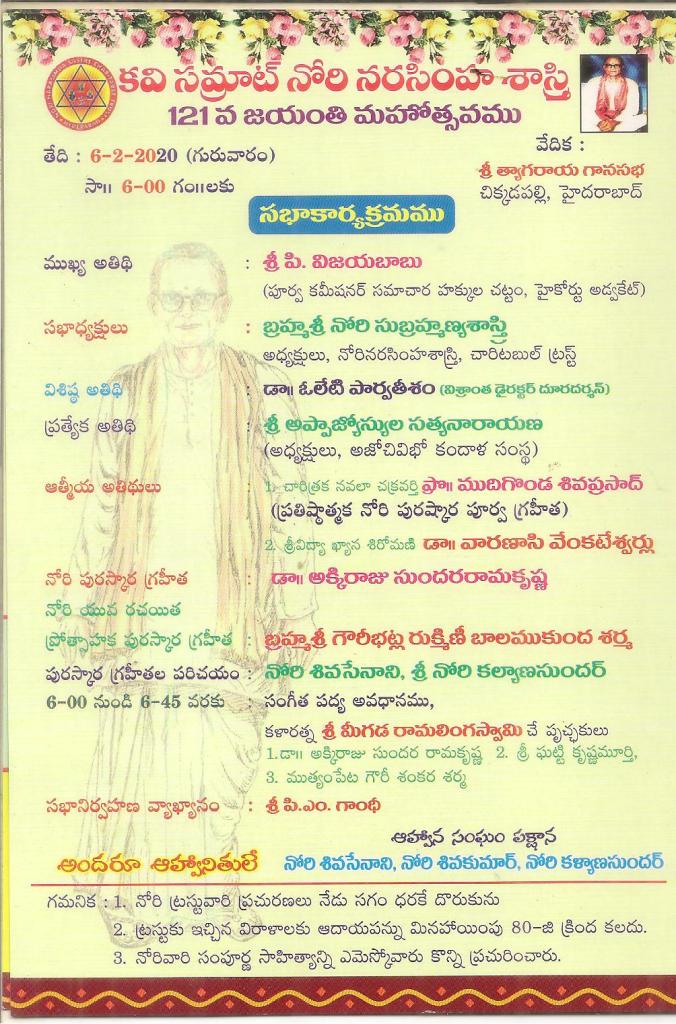 కవి సమ్రాట్ నోరి నరసింహ శాస్త్రి
121 వ జయంతి మహోత్సవము
తేది : 6-2-2020 (గురువారం)
సా॥ 6-00 గం॥లకు
వేదిక :
శ్రీ త్యాగరాయ గానసభ
చిక్కడపల్లి, హైదరాబాద్
సభాకార్యక్రమము
ముఖ్య అతిథి : శ్రీ పి. విజయబాబు
(పూర్వ కమీషనర్ సమాచార హక్కుల చట్టం, హైకోర్టు అడ్వకేట్)
సభాధ్యక్షులు : బ్రహ్మశ్రీ నోరి సుబ్రహ్మణ్యశాస్త్రి
అధ్యక్షులు, నోరినరసింహశాస్త్రి, చారిటబుల్ ట్రస్ట్
విశిష్ఠ అతిథి : డా॥ ఓలేటి పార్వతీశం (విశ్రాంత డైరక్టర్ దూరదర్శన్)
ప్రత్యేక అతిథి : శ్రీ అప్పాజ్యోస్యుల సత్యనారాయణ
(అధ్యక్షులు, అజోచివిభో కందాళ సంస్థ)
ఆత్మీయ అతిథులు : 1. చారిత్రక నవలా చక్రవర్తి ప్రొ॥ ముదిగొండ శివప్రసాద్
(ప్రతిష్ఠాత్మక నోరి పురష్కార పూర్వ గ్రహీత)
2. శ్రీవిద్యా ఖ్యాన శిరోమణి డా॥ వారణాసి వేంకటేశ్వర్లు
నోరి పురస్కార గ్రహీత : డా॥ అక్కిరాజు సుందరరామకృష్ణ
నోరి యువ రచయిత
ప్రోత్సాహక పురస్కార గ్రహీత : బ్రహ్మశ్రీ గౌరీభట్ల రుక్మిణీ బాలముకుంద శర్మ
పురస్కార గ్రహీతల పరిచయం : నోరి శివసేనాని, శ్రీ నోరి కల్యాణసుందర్
6-00 నుండి 6-45 వరకు : సంగీత పద్య అవధానము,
కళారత్న శ్రీ మీగడ రామలింగస్వామి చే పృచ్ఛకులు
1.డా॥ అక్కిరాజు సుందర రామకృష్ణ 2. శ్రీ ఘట్టి కృష్ణమూర్తి,
3. ముత్యంపేట గౌరీ శంకర శర్మ
సభానిర్వహణ వ్యాఖ్యానం : శ్రీ పి.ఎం. గాంధి
ఆహ్వాన సంఘం పక్షాన
అందరూ ఆహ్వానితులే నోరి శివసేనాని, నోరి శివకుమార్, నోరి కళ్యాణసుందర్
గమనిక : 1. నోరి ట్రస్టువారి ప్రచురణలు నేడు సగం ధరకే దొరుకును
2. ట్రస్టుకు ఇచ్చిన విరాళాలకు ఆదాయపన్ను మినహాయింపు 80-జి క్రింద కలదు.
3. నోరివారి సంపూర్ణ సాహిత్యాన్ని ఎమెస్కోవారు కొన్ని ప్రచురించారు.